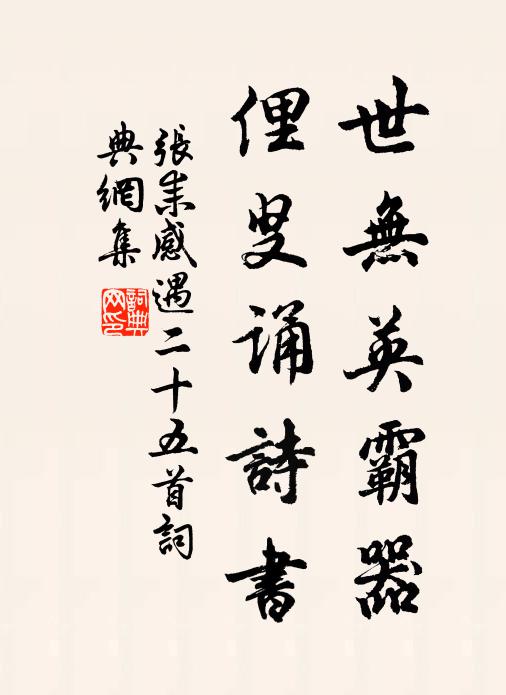 世無英霸器
俚叟誦詩書
張耒感遇二十五首詞
典網集
詞典網印